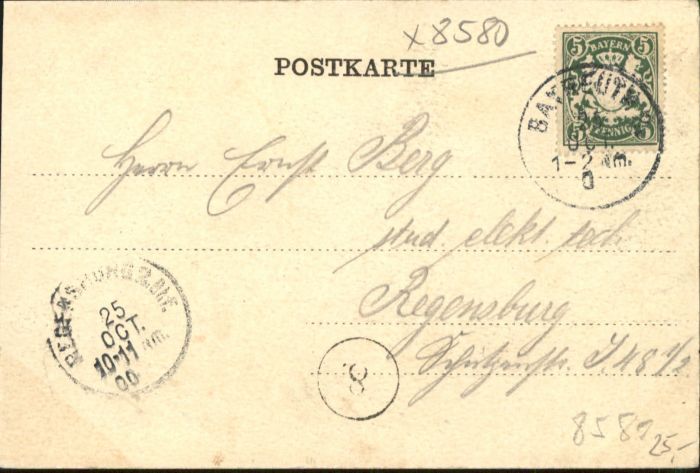 x 8580
POSTKARTE
5 BAYERN 5
5 PFENNIG 5
BAYREUTH
1-2 Nm.
Herrn Ernst Berg
stud. elekt. tech.
Regensburg
REGENSBURG 2. Bhf.
25
OCT.
10-11 Nm.
00
8.
Schützenstr. J 48 1/2
858
25,-